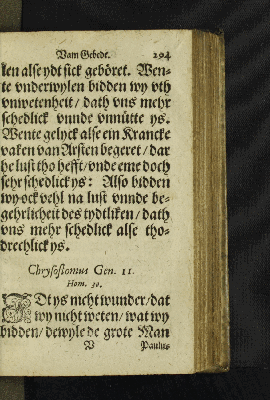 Vam Gebedt. 194
len alse ydt sick geböret. Wen-
te vnderwylen bidden wy vth
vnwetenheit / dath vns mehr
schedlick vnnde vnnütte ys.
Wente gelyck alse ein Krancke
vaken van Arsten begeret / dar
he lust tho hefft / vnde eme doch
sehr schedlick ys: Also bidden
wy ock vehl na lust vnnde be-
gehrlicheit des tydtliken / dath
vns mehr schedlick alse tho-
drechlick ys.
Chrysostomus Gen. 11.
Hom. 30.
IDt ys nicht wunder / dat
wy nicht weten / wat wy
bidden / dewyle de grote Man
V Paulus